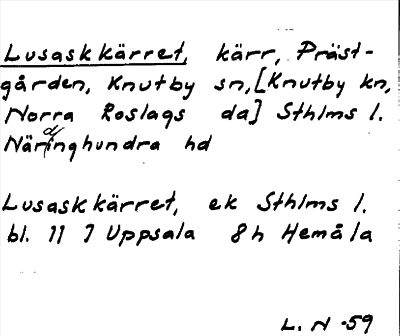 Lusaskkärret, kärr, Präst-
gården, Knutby sn, [Knutby kn,
Norra Roslags da] Sthlms l.
Närdinghundra hd
Lusaskkärret, ek Sthlms l.
bl. 11 I Uppsala 8h Hemåla
L. N -59